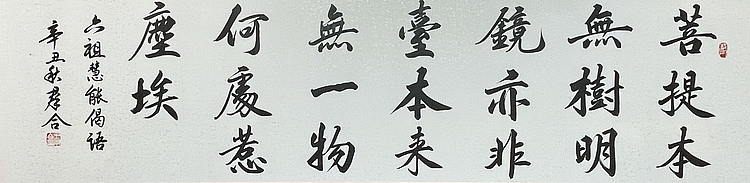 菩提本
無樹明
鏡亦非
臺本来
無一物
何處惹
塵埃
六祖慧能偈语
辛丑秋君合